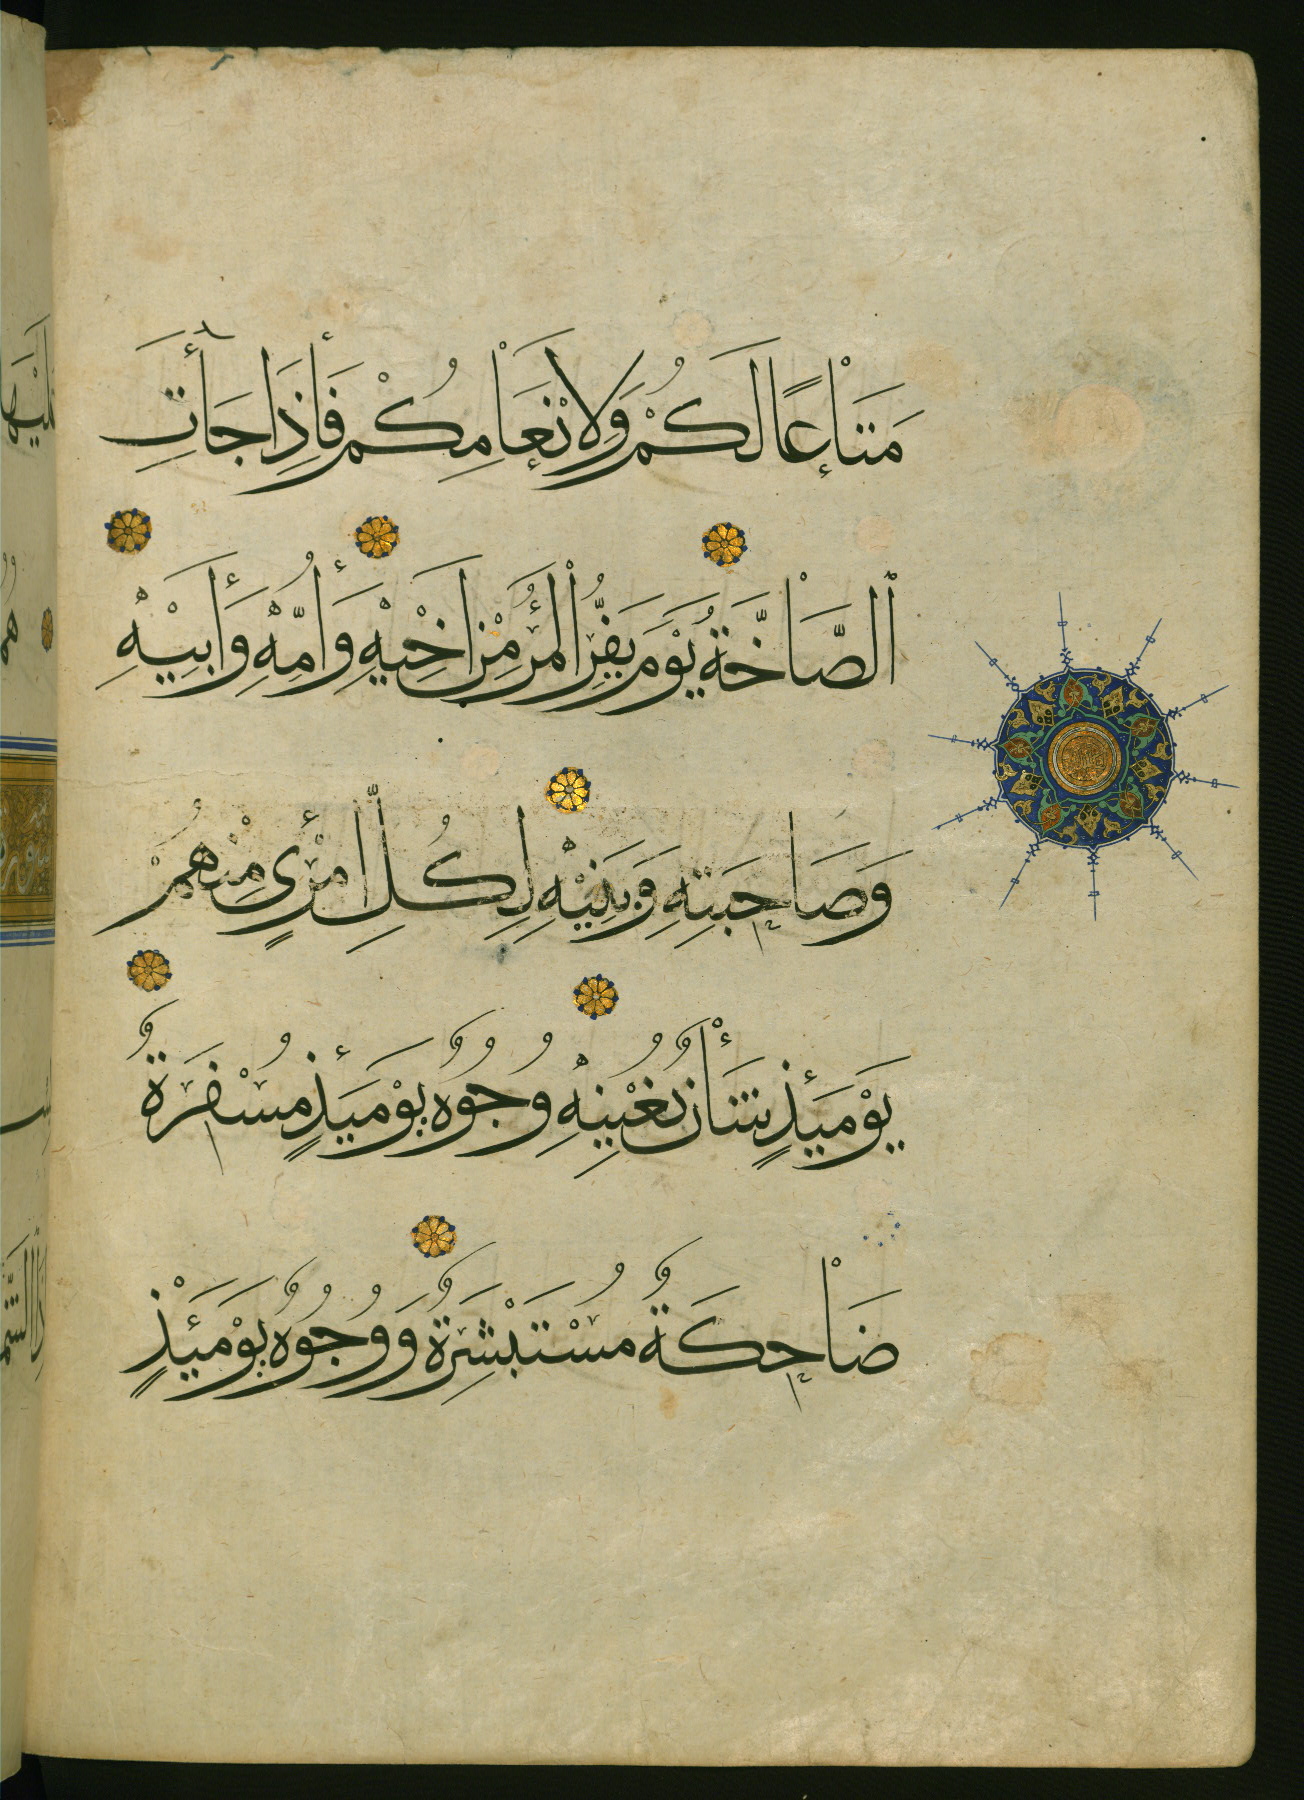 مَتَاْعًا لَكُمْ وَلِاَنْعَاْمِكُمْ فَأِذَا جَآأَتِ
اَلصَّاْخَّةُ يَوْمَ يَفِرُّ اْلمَرْءُ مِنْ اَخِيْهِ وَأُمِّهْ وَأَبِيْهِ
وَصَاحِبَتِهِ وَبَنِيْهِ لِكُلِّ امْرِئٍ مِنْهُمْ
يَوْمَئِذٍ شَأْنٌ يُغْنِيْهِ وُجُوْهٌ يَوْمَئِذٍ مُسْفِرَةٌ
ضَاْحِكَةٌ مُسْتَبْشِرَةٌ وَوُجُوْهٌ يَوْمَئِذٍ